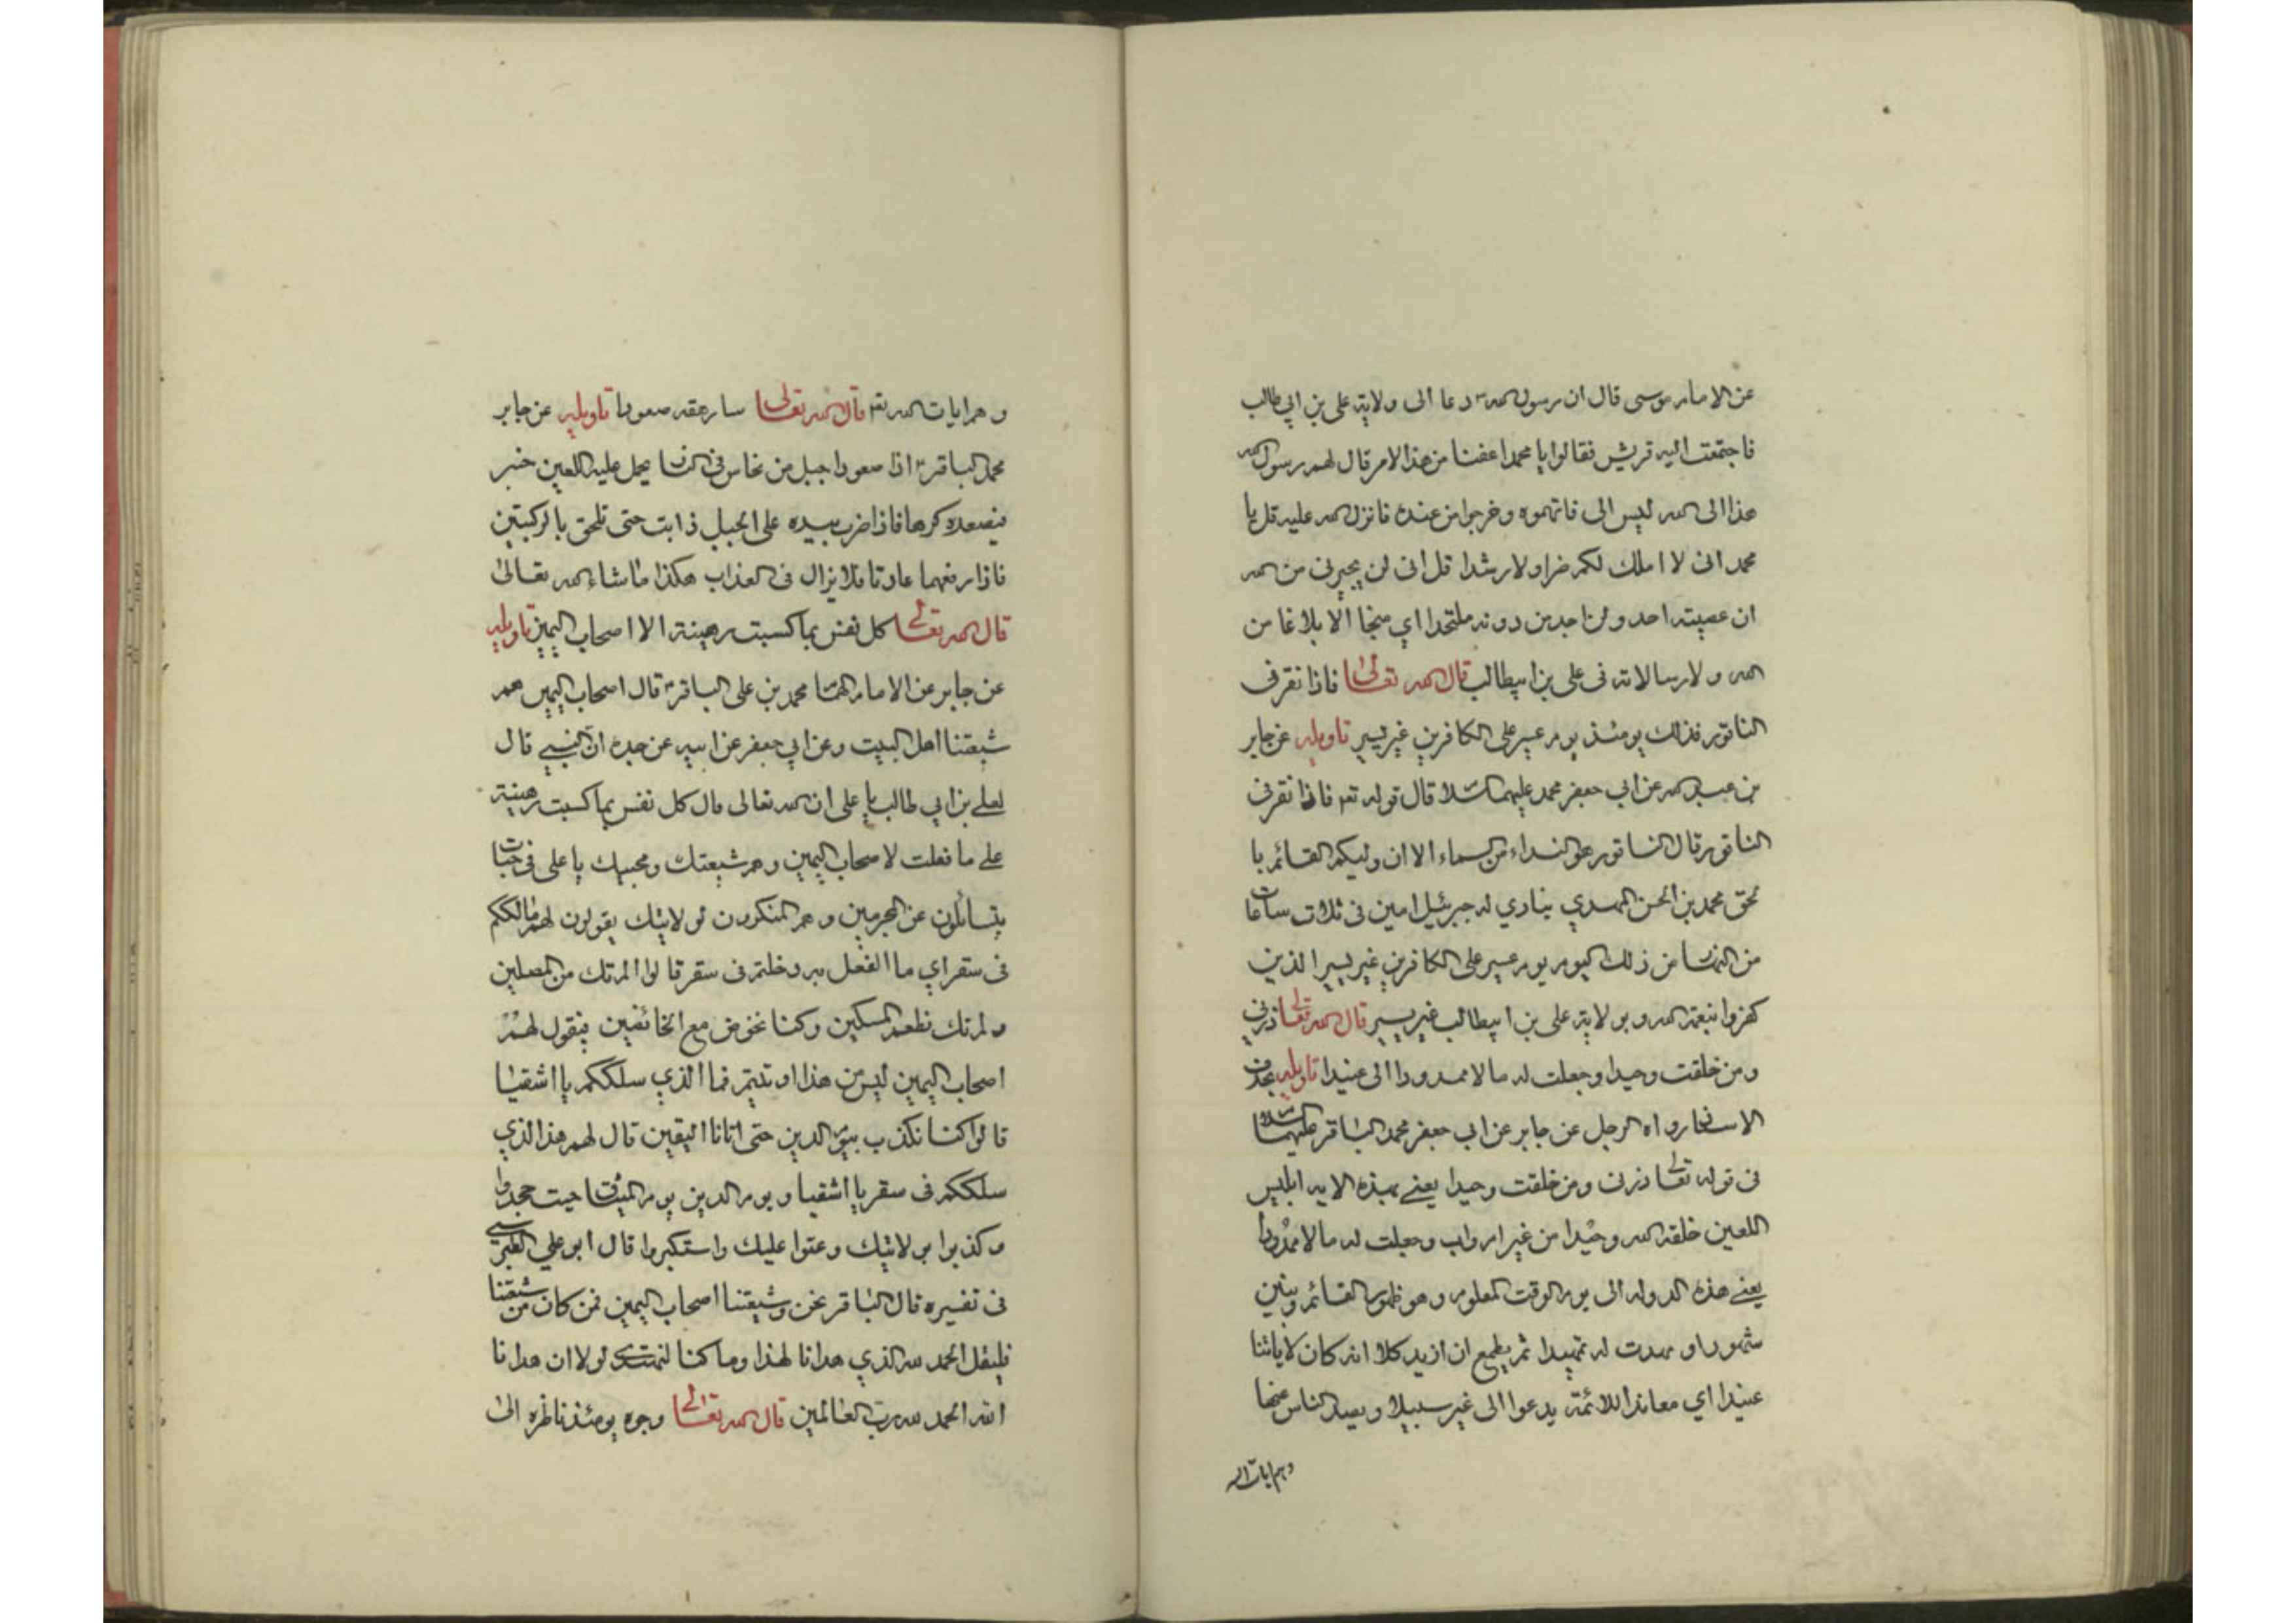 عن الامام موسى قال ان رسول الله ص دعا الى ولاية على بن ابي طالب
فاجتمعت اليه قريش فقالوا يا محمد اعفنا من هذا الامر قال لهم رسول الله
هذا الى الله ليس الى فاتهموه وخرجوا من عنده فانزل الله عليه قل يا
محمد انى لا املك لكم ضرا ولا رشدا قل انى لن يجيرنى من الله
ان عصيته احد ولن اجد من دونه ملتحدا اي منجا الا بلاغا من
الله ورسالاته فى على بن ابيطالب قال الله تعالى فاذا نقر فى
الناقور فذلك يومئذ يوم عسير على الكافرين غير يسير تاويله عن جابر
بن عبد الله عن ابي جعفر محمد عليهما السلام قال قوله تعه فاذا نقر فى
الناقور قال الناقور هو النداء من السماء الا ان وليكم القائم با
لحق محمد بن الحسن المهدي ينادي له جبرئيل امين فى ثلاث ساعات
من النهار من ذلك اليوم يوم عسير على الكافرين غير يسير الذين
كفروا نبعمة الله وبولاية على بن ابيطالب غير يسير قال الله تعالى ذرني
ومن خلقت وحيدا وجعلت له مالا ممدودا الى عنيدا تاويله
رواه الرجل عن جابر عن ابي جعفر محمد الباقر عليهما السلام
فى قوله تعالى ذرنى ومن خلقت وحيدا يعنى بهذه الايه ابليس
اللعين خلقه الله وحيدا من غير ام واب وجعلت له مالا ممدودا
يعنى هذه الدوله الى يوم الوقت المعلوم وهو ظهور القائم وبنين
شهودا ومهدت له تمهيدا ثم يطمع ان ازيد كلا انه كان لاياتنا
عنيدا اي معاندا للائمة يدعوا الى غير سبيلا ويصد الناس عنها
وهم ايات الله
وهم ايات الله تعه قال الله تعالى سارهقه صعودا تاويله عن جابر
محمد الباقر ع اذا صعودا جبل من نحاس فى النار يحمل عليه اللعين حبتر
فيصعده كرها فاذا ضرب بيده على الجبل ذابت حتى تلحق بالركبتين
فاذا رفعهما عادتا فلا يزال فى العذاب هكذا ما شاء الله تعالى
قال الله تعالى كل نفس بما كسبت رهينة الا اصحاب اليمين تاويله
عن جابر عن الامام محمد بن على الباقر ع قال اصحاب اليمين هم
شيعتنا اهل البيت وعن ابي جعفر عن ابيه عن جده ان النبي قال
لعلي بن ابي طالب يا على ان الله تعالى قال كل نفس بما كسبت رهينة
على ما فعلت لا صحاب اليمين وهم شيعتك ومحبيك يا على فى جنات
يتسائلون عن المجرمين وهم المنكرون لولايتك يقولون لهم ما سلككم
فى سقر اي ما الفعل به دخلتم فى سقر قالوا لم نك من المصلين
ولم نك نطعم المسكين وكنا نخوض مع الخائضين فيقول لهم
اصحاب اليمين ليس من هذا اوتيتم فما الذي سلككم يا اشقيا
قالوا كنا نكذب بيوم الدين حتى اتانا اليقين قال لهم هذا الذي
سلككم فى سقر يا اشقيا ويوم الدين يوم الميثاق حيث جحدوا
وكذبوا بولايتك وعتوا عليك واستكبروا قال ابو علي الطبرسي
فى تفسيره قال الباقر نحن وشيعتنا اصحاب اليمين فمن كان من شيعتنا
فليقل الحمد لله الذي هدانا لهذا وما كنا لنهتدى لولا ان هدانا
الله الحمد لله رب العالمين قال الله تعالى وجوه يومئذ ناظره الى